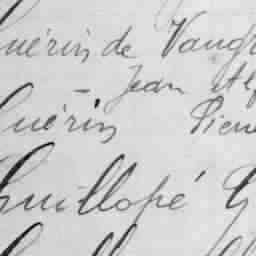 Guérin de Vaugr
- Jean Alf
Guérin Pierr
Guillopé G